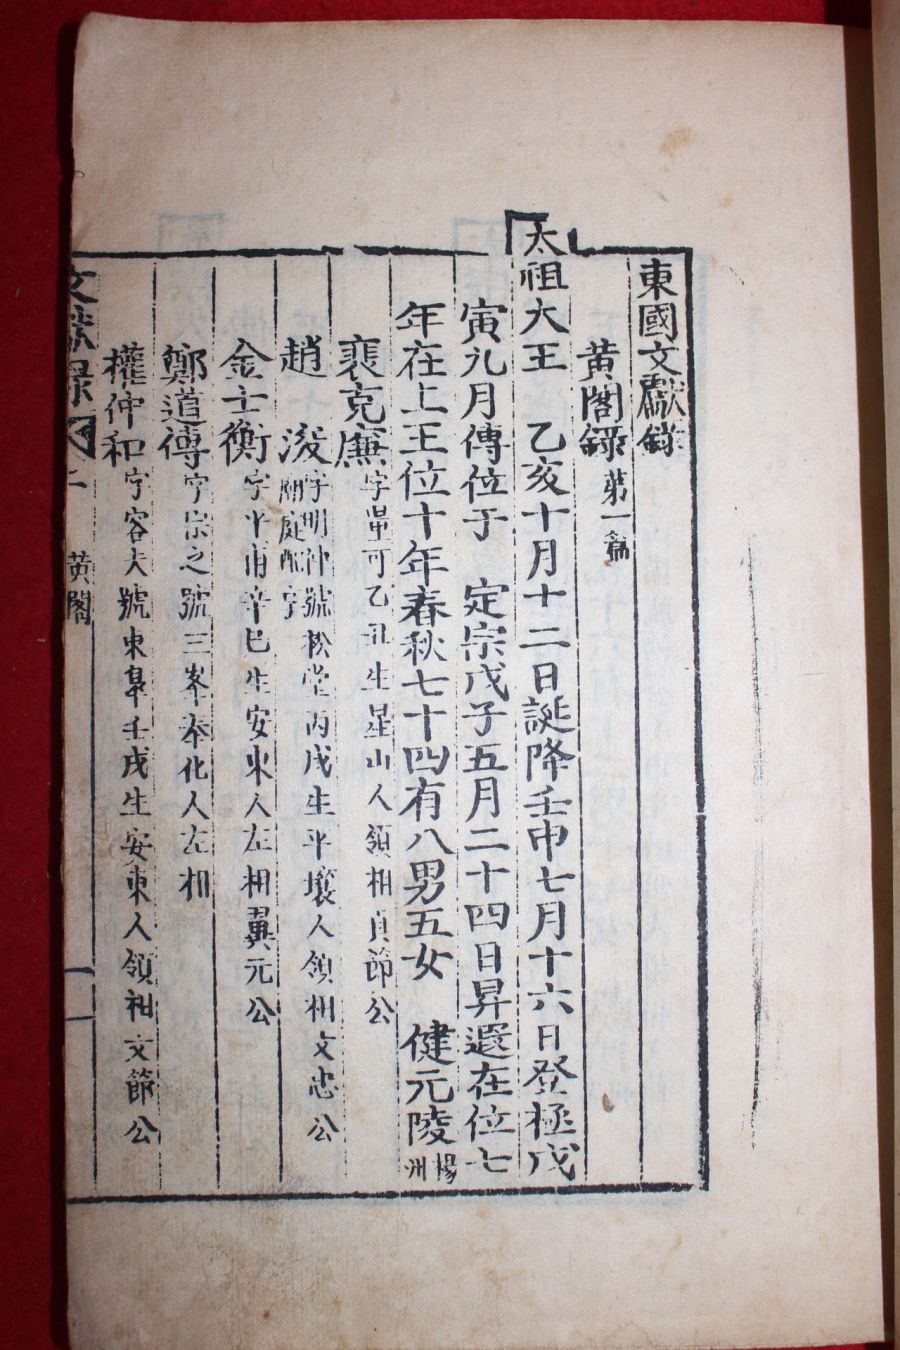 東國文獻錄
黃閣錄 第一編
太祖大王 乙亥十月十二日誕降壬申七月十六日登極戊
寅九月傳位于 定宗戊子五月二十四日昇遐在位七
年在上王位十年春秋七十四有八男五女 健元陵 楊洲
裵克廉 字量可乙丑生星山人領相貞節公
趙 浚 字明仲號松堂丙戌生平壤人領相文忠公
廟庭配字
金士衡 字平甫辛巳生安東人左相翼元公
鄭道傳 字宗之號三峯奉化人左相
權仲和 字容夫號東皐壬戌生安東人領相文節公
文獻錄 二 黃閣 一